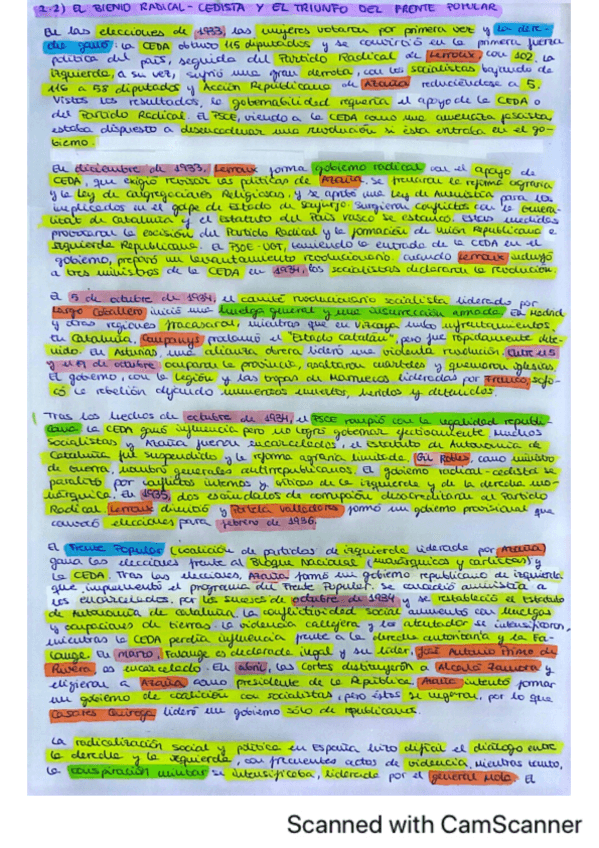 2.2) EL BIENIO RADICAL-CEDISTA Y EL TRIUNFO DEL FRENTE POPULAR
En las elecciones de 1933, las mujeres votaron por primera vez y la dere-
cha ganó: la CEDA obtuvo 115 diputados y se convirtió en la primera fuerza
política del país, seguida del Partido Radical de Lerroux con 102. La
izquierda, a su vez, sufrió una gran derrota, con los socialistas bajando de
116 a 58 diputados y Acción Republicana de Azaña reduciéndose a 5.
Vistos los resultados, la gobernabilidad requería el apoyo de la CEDA o
del Partido Radical. El PSOE, viendo a la CEDA como una amenaza fascista,
estaba dispuesto a desencadenar una revolución si ésta entraba en el go-
bierno.
En diciembre de 1933, Lerroux forma gobierno radical con el apoyo de
CEDA, que exigió revisar las políticas de Azaña. Se frenaron la reforma agraria
y la Ley de Congregaciones Religiosas y se aprobó una Ley de Amnistía para los
implicados en el golpe de Estado de Sanjurjo. Surgieron conflictos con la Genera-
litat de Cataluña y el estatuto del País Vasco se estancó. Estas medidas
provocaron la escisión del Partido Radical y la formación de Unión Republicana e
Izquierda Republicana. El PSOE-UGT, temiendo la entrada de CEDA en el
gobierno, preparó un levantamiento revolucionario. Cuando Lerroux incluyó
a tres ministros de la CEDA en 1934, los socialistas declararon la revolución.
El 5 de octubre de 1934, el comité revolucionario socialista liderado por
Largo Caballero inició una huelga general y una insurrección armada. En Madrid
y otras regiones fracasaron, mientras que en Vizcaya hubo enfrentamientos.
En Cataluña, Companys proclamó el "Estado catalán", pero fue rápidamente dete-
nido. En Asturias, una alianza obrera lideró una violenta revolución. Entre el 5
y el 19 de octubre ocuparon la provincia, asaltaron cuarteles y quemaron iglesias.
El gobierno, con la Legión y las tropas de Marruecos lideradas por Franco, sofo-
có la rebelión dejando numerosos muertos, heridos y detenidos.
Tras los hechos de octubre de 1934, el PSOE rompió con la legalidad republi-
cana. La CEDA ganó influencia pero no logró gobernar efectivamente. Muchos
socialistas y Azaña fueron encarcelados, el Estatuto de Autonomía de
Cataluña fue suspendido y la reforma agraria limitada. Gil Robles, como ministro
de Guerra, nombró generales antirrepublicanos. El gobierno radical-cedista se
paralizó por conflictos internos y críticas de la izquierda y de la derecha mo-
nárquica. En 1935, dos escándalos de corrupción desacreditaron al Partido
Radical. Lerroux dimitió y Portela Valladares formó un gobierno provisional que
convocó elecciones para febrero de 1936.
El Frente Popular (coalición de partidos de izquierda liderada por Azaña)
gana las elecciones frente al Bloque Nacional (monárquicos y carlistas) y
la CEDA. Tras las elecciones, Azaña formó un gobierno republicano de izquierda
que implementó el programa del Frente Popular. Se concedió amnistía a
los encarcelados por los sucesos de octubre de 1934 y se restableció el Estatuto
de Autonomía de Cataluña. La conflictividad social aumentó con huelgas
y ocupaciones de tierras. La violencia callejera y los atentados se intensificaron,
mientras la CEDA perdía influencia frente a la derecha autoritaria y la Fa-
lange. En marzo, Falange es declarada ilegal y su líder, José Antonio Primo de
Rivera, es encarcelado. En abril, las Cortes destituyeron a Alcalá Zamora y
eligieron a Azaña como presidente de la República. Azaña intentó formar
un gobierno de coalición con socialistas, pero éstos se negaron, por lo que
Casares Quiroga lideró un gobierno sólo de republicanos.
La radicalización social y política en España hizo difícil el diálogo entre
la derecha y la izquierda, con frecuentes actos de violencia. Mientras tanto,
la conspiración militar se intensificaba, liderada por el general Mola. El
Scanned with CamScanner